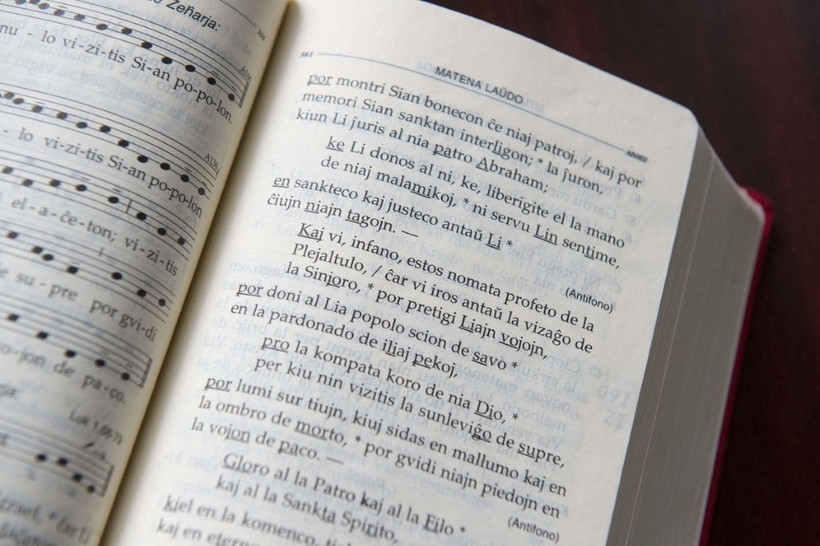 de Zeñarja:
nu - lo vi-zi-tis Si-an po-po-lon.
- lo vi-zi-tis Si-an po-po-lon
el-a-ĉe-ton; vi-zi-tis
de su - pre por gvi-di
jon de pa-co.
Luk 1,68-79
MATENA LAŬDO
por montri Sian bonecon ĉe niaj patroj, / kaj por
memori Sian sanktan interligon; * la ĵuron,
kiun Li ĵuris al nia patro Abraham;
ke Li donos al ni, ke, liberigite el la mano
de niaj malamikoj, * ni servu Lin sentime,
en sankteco kaj justeco antaŭ Li *
ĉiujn niajn tagojn. —
(Antifono)
Kaj vi, infano, estos nomata profeto de la
Plejaltulo, / ĉar vi iros antaŭ la vizaĝo de
la Sinjoro, * por pretigi Liajn vojojn,
por doni al Lia popolo scion de savo *
en la pardonado de iliaj pekoj,
pro la kompata koro de nia Dio, *
per kiu nin vizitis la sunleviĝo de supre,
por lumi sur tiujn, kiuj sidas en mallumo kaj en
la ombro de morto, * por gvidi niajn piedojn en
la vojon de paco. —
(Antifono)
Gloro al la Patro kaj al la Filo *
kaj al la Sankta Spirito,
kiel en la komenco, tiel
kaj en eterne